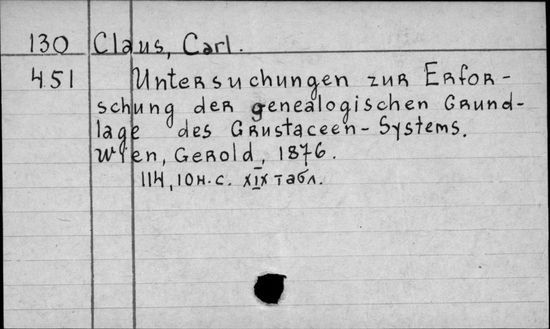 130 Claus, Carl.
451 Untersuchungen zur Erfor-
schung der genealogischen Grund-
lage des Crustaceen-Systems.
Wien, Gerold, 1876.
114, 10 н.с. XIX табл.